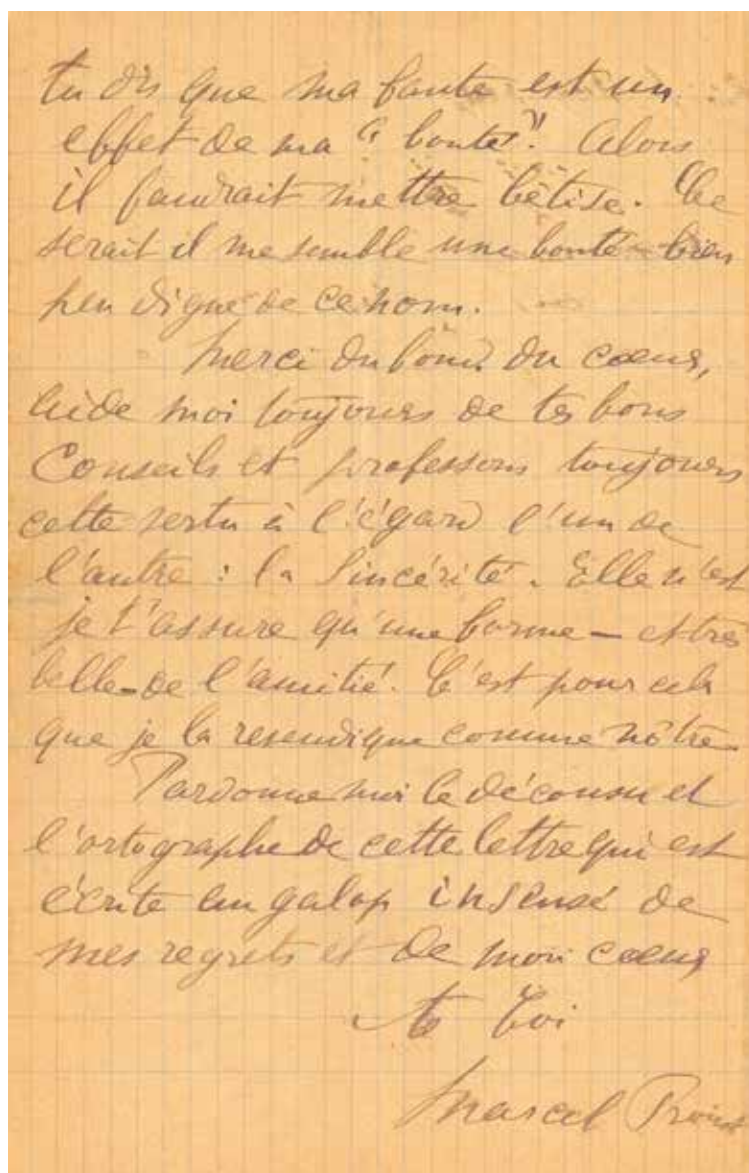 tu dis que ma faute est un
effet de ma "bonté". Alors
il faudrait mettre bêtise. Ce
serait il me semble une bonté bien
peu digne de ce nom.
Merci du fond du cœur,
aide moi toujours de tes bons
Conseils et professons toujours
cette vertu à l'égard l'un de
l'autre : la Sincérité. Elle n'est
je t'assure qu'une forme – et très
belle – de l'amitié. C'est pour cela
que je la revendique comme nôtre
Pardonne moi le décousu et
l'ortographe de cette lettre qui est
écrite au galop insensé de
mes regrets et de mon cœur
à toi
Marcel Proust